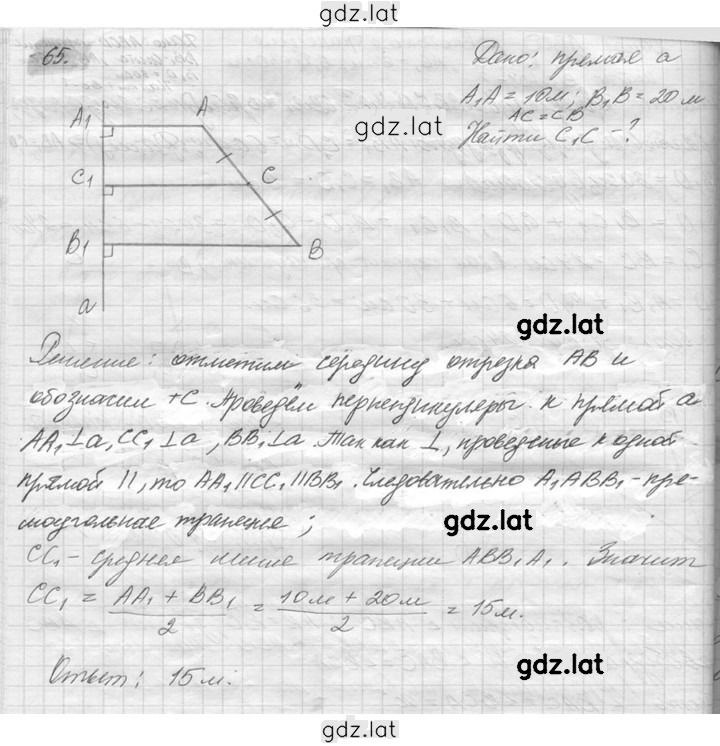 gdz.lat
65.
Дано: прямая a
A₁A = 10м; B₁B = 20 м
AC = CB
Найти C₁C - ?
gdz.lat
A₁ A
C₁ C
B₁ B
a
gdz.lat
Решение: отметим середину отрезка AB и
обозначим т C. Проведём перпендикуляры к прямой a
AA₁⊥a, CC₁⊥a, BB₁⊥a. Так как ⊥, проведеные к одной
прямой ||, то AA₁||CC₁||BB₁. Следовательно A₁ABB₁ - пря-
моугольная трапеция;
gdz.lat
CC₁ - средняя линия трапеции ABB₁A₁. Значит
CC₁ = (AA₁ + BB₁)/2 = (10м + 20м)/2 = 15м.
Ответ: 15м.
gdz.lat
gdz.lat